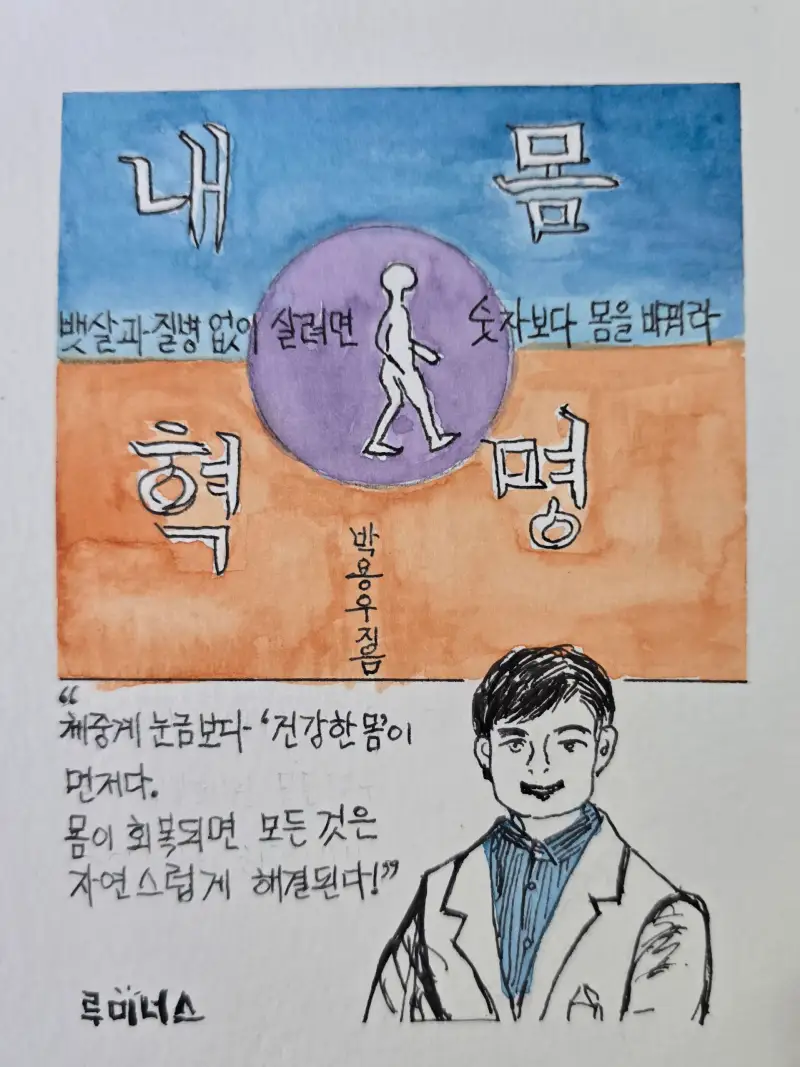 내 몸
뱃살과 질병 없이 살려면 숫자보다 몸을 바꿔라
혁 명
박용우 지음
“체중계 눈금보다 ‘건강한 몸’이
먼저다.
몸이 회복되면 모든 것은
자연스럽게 해결된다!”
루미너스